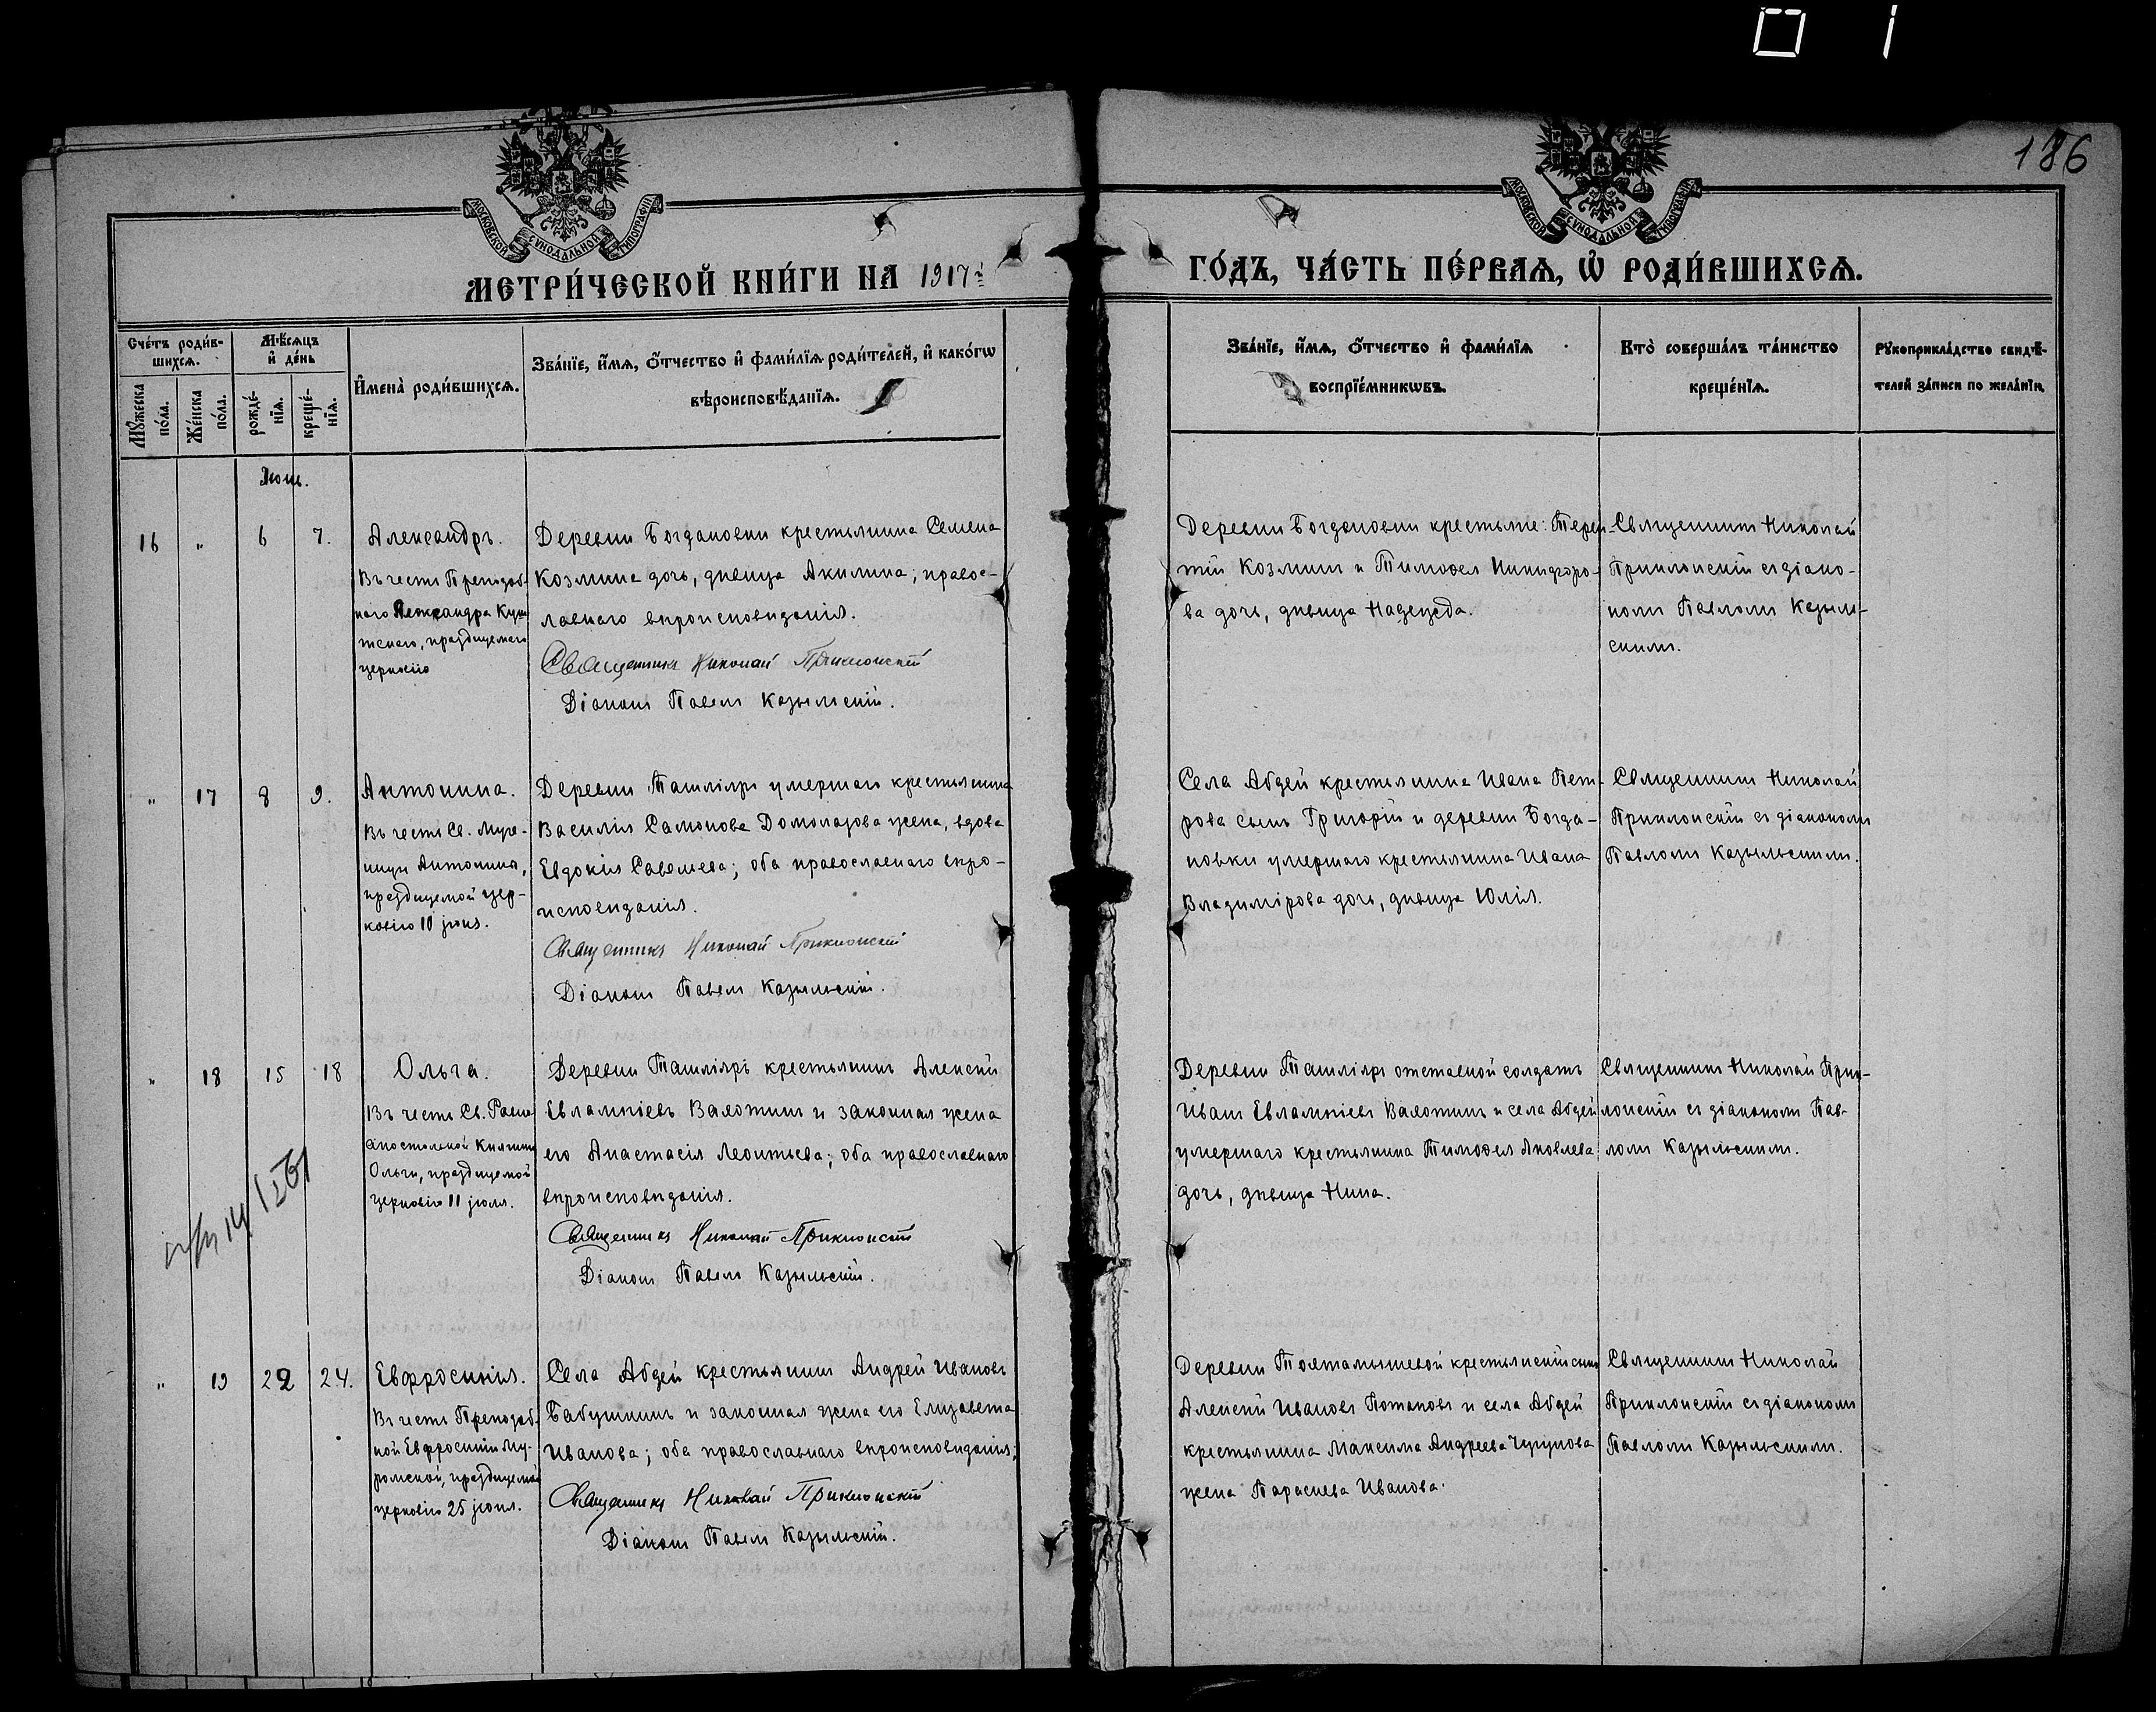 186
МОСКОВСКОЙ СѴНОДАЛЬНОЙ ТИПОГРАФІИ
МОСКОВСКОЙ СѴНОДАЛЬНОЙ ТИПОГРАФІИ
МЕТРИ́ЧЕСКОЙ КНИ́ГИ НА 1917й ГО́ДЪ, ЧА́СТЬ ПЕ́РВАѦ, Ѡ҆ РОДИ́ВШИХСѦ.
Сче́тъ роди́в-
шихсѧ.
Мꙋ́жеска по́ла.
Же́нска по́ла.
Мѣ́сѧцъ и҆ де́нь
рожде́-нїѧ.
креще́-нїѧ.
И҆мена̀ роди́вшихсѧ.
Зва́нїе, и҆́мѧ, ѻ҆́тчество и҆ фами́лїѧ роди́телей, и҆ како́гѡ
вѣроисповѣ́данїѧ.
Зва́нїе, и҆́мѧ, ѻ҆́тчество и҆ фами́лїѧ
воспрїе́мникѡвъ.
Кто̀ соверша́лъ та́инство
креще́нїѧ.
Рꙋкоприкла́дство свидѣ́-
телей за́писи по жела́нїю.
Іюнь.
16 " 6 7.
Александръ.
Въ честь Преподоб-
наго Александра Куш-
тскаго, празднуемаго
церковію
Деревни Богдановки крестьянина Семена
Козмина дочь, дѣвица Акилина; правос-
лавнаго вѣроисповѣданія.
Священникъ Николай Приклонскій
Діаконъ Павелъ Казыльскій.
Деревни Богдановки крестьяне: Терен-
тій Козминъ и Тимоѳея Никифоро-
ва дочь, дѣвица Надежда.
Священникъ Николай
Приклонскій съ діако-
номъ Павломъ Казыль-
скимъ.
" 17 8 9.
Антонина.
Въ честь Св. Муче-
ницы Антонины,
празднуемой цер-
ковію 10 іюня.
Деревни Ташліяръ умершаго крестьянина
Василія Самонова Домолазова жена, вдова
Евдокія Савельева; оба православнаго вѣро-
исповѣданія.
Священникъ Николай Приклонскій
Діаконъ Павелъ Казыльскій.
Села Абдей крестьянина Ивана Пет-
рова сынъ Григорій и деревни Богда-
новки умершаго крестьянина Ивана
Владимірова дочь, дѣвица Юлія.
Священникъ Николай
Приклонскій съ діакономъ
Павломъ Казыльскимъ.
" 18 15 18
Ольга.
Въ честь Св. Равно
апостольной Княгини
Ольги, празднуемой
церковію 11 іюля.
Деревни Ташліяръ крестьянинъ Алексій
Евлампіевъ Валотинъ и законная жена
его Анастасія Леонтьева; оба православнаго
вѣроисповѣданія.
Священникъ Николай Приклонскій
Діаконъ Павелъ Казыльскій.
Деревни Ташліяръ отставной солдатъ
Иванъ Евлампіевъ Валотинъ и села Абдей
умершаго крестьянина Тимоѳея Яковлева
дочь, дѣвица Нина.
Священникъ Николай Прик-
лонскій съ діакономъ Пав-
ломъ Казыльскимъ.
" 19 22 24.
Евфросинія.
Въ честь Преподоб-
ной Евфросиніи Му-
ромской, празднуемой
церковію 25 іюня.
Села Абдей крестьянинъ Андрей Ивановъ
Бабушкинъ и законная жена его Елизавета
Иванова; оба православнаго вѣроисповѣданія;
Священникъ Николай Приклонскій
Діаконъ Павелъ Казыльскій.
крестьянскій сынъ
Алексій Ивановъ Потаповъ и села Абдей
крестьянина Максима Андреева Чугунова
жена Параскева Иванова.
Священникъ Николай
Приклонскій съ діакономъ
Павломъ Казыльскимъ.